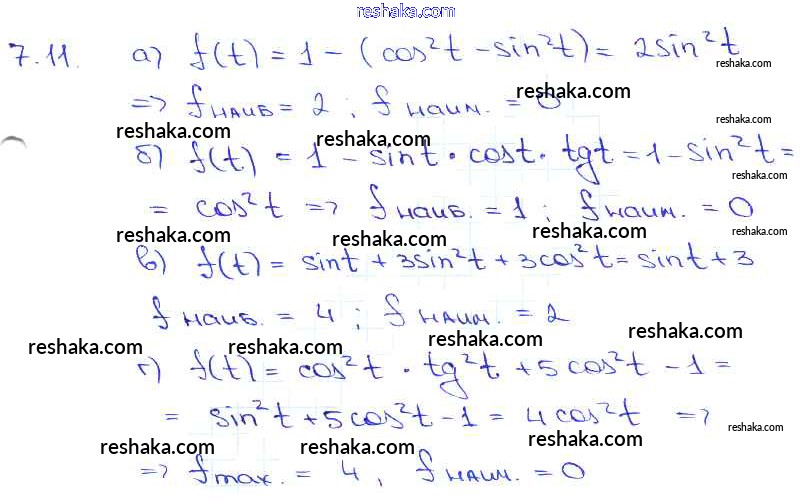 reshaka.com
7.11. а) f(t) = 1 - (cos²t - sin²t) = 2sin²t
reshaka.com
=> f наиб = 2 ; f наим. = 0
reshaka.com reshaka.com reshaka.com reshaka.com
б) f(t) = 1 - sint · cost · tgt = 1 - sin²t =
reshaka.com
= cos²t => f наиб. = 1 ; f наим. = 0
reshaka.com reshaka.com reshaka.com reshaka.com
в) f(t) = sint + 3sin²t + 3cos²t = sint + 3
f наиб. = 4 ; f наим. = 2
reshaka.com reshaka.com reshaka.com reshaka.com
г) f(t) = cos²t · tg²t + 5cos²t - 1 =
= sin²t + 5cos²t - 1 = 4cos²t =>
reshaka.com reshaka.com reshaka.com reshaka.com
=> f max. = 4, f наим. = 0